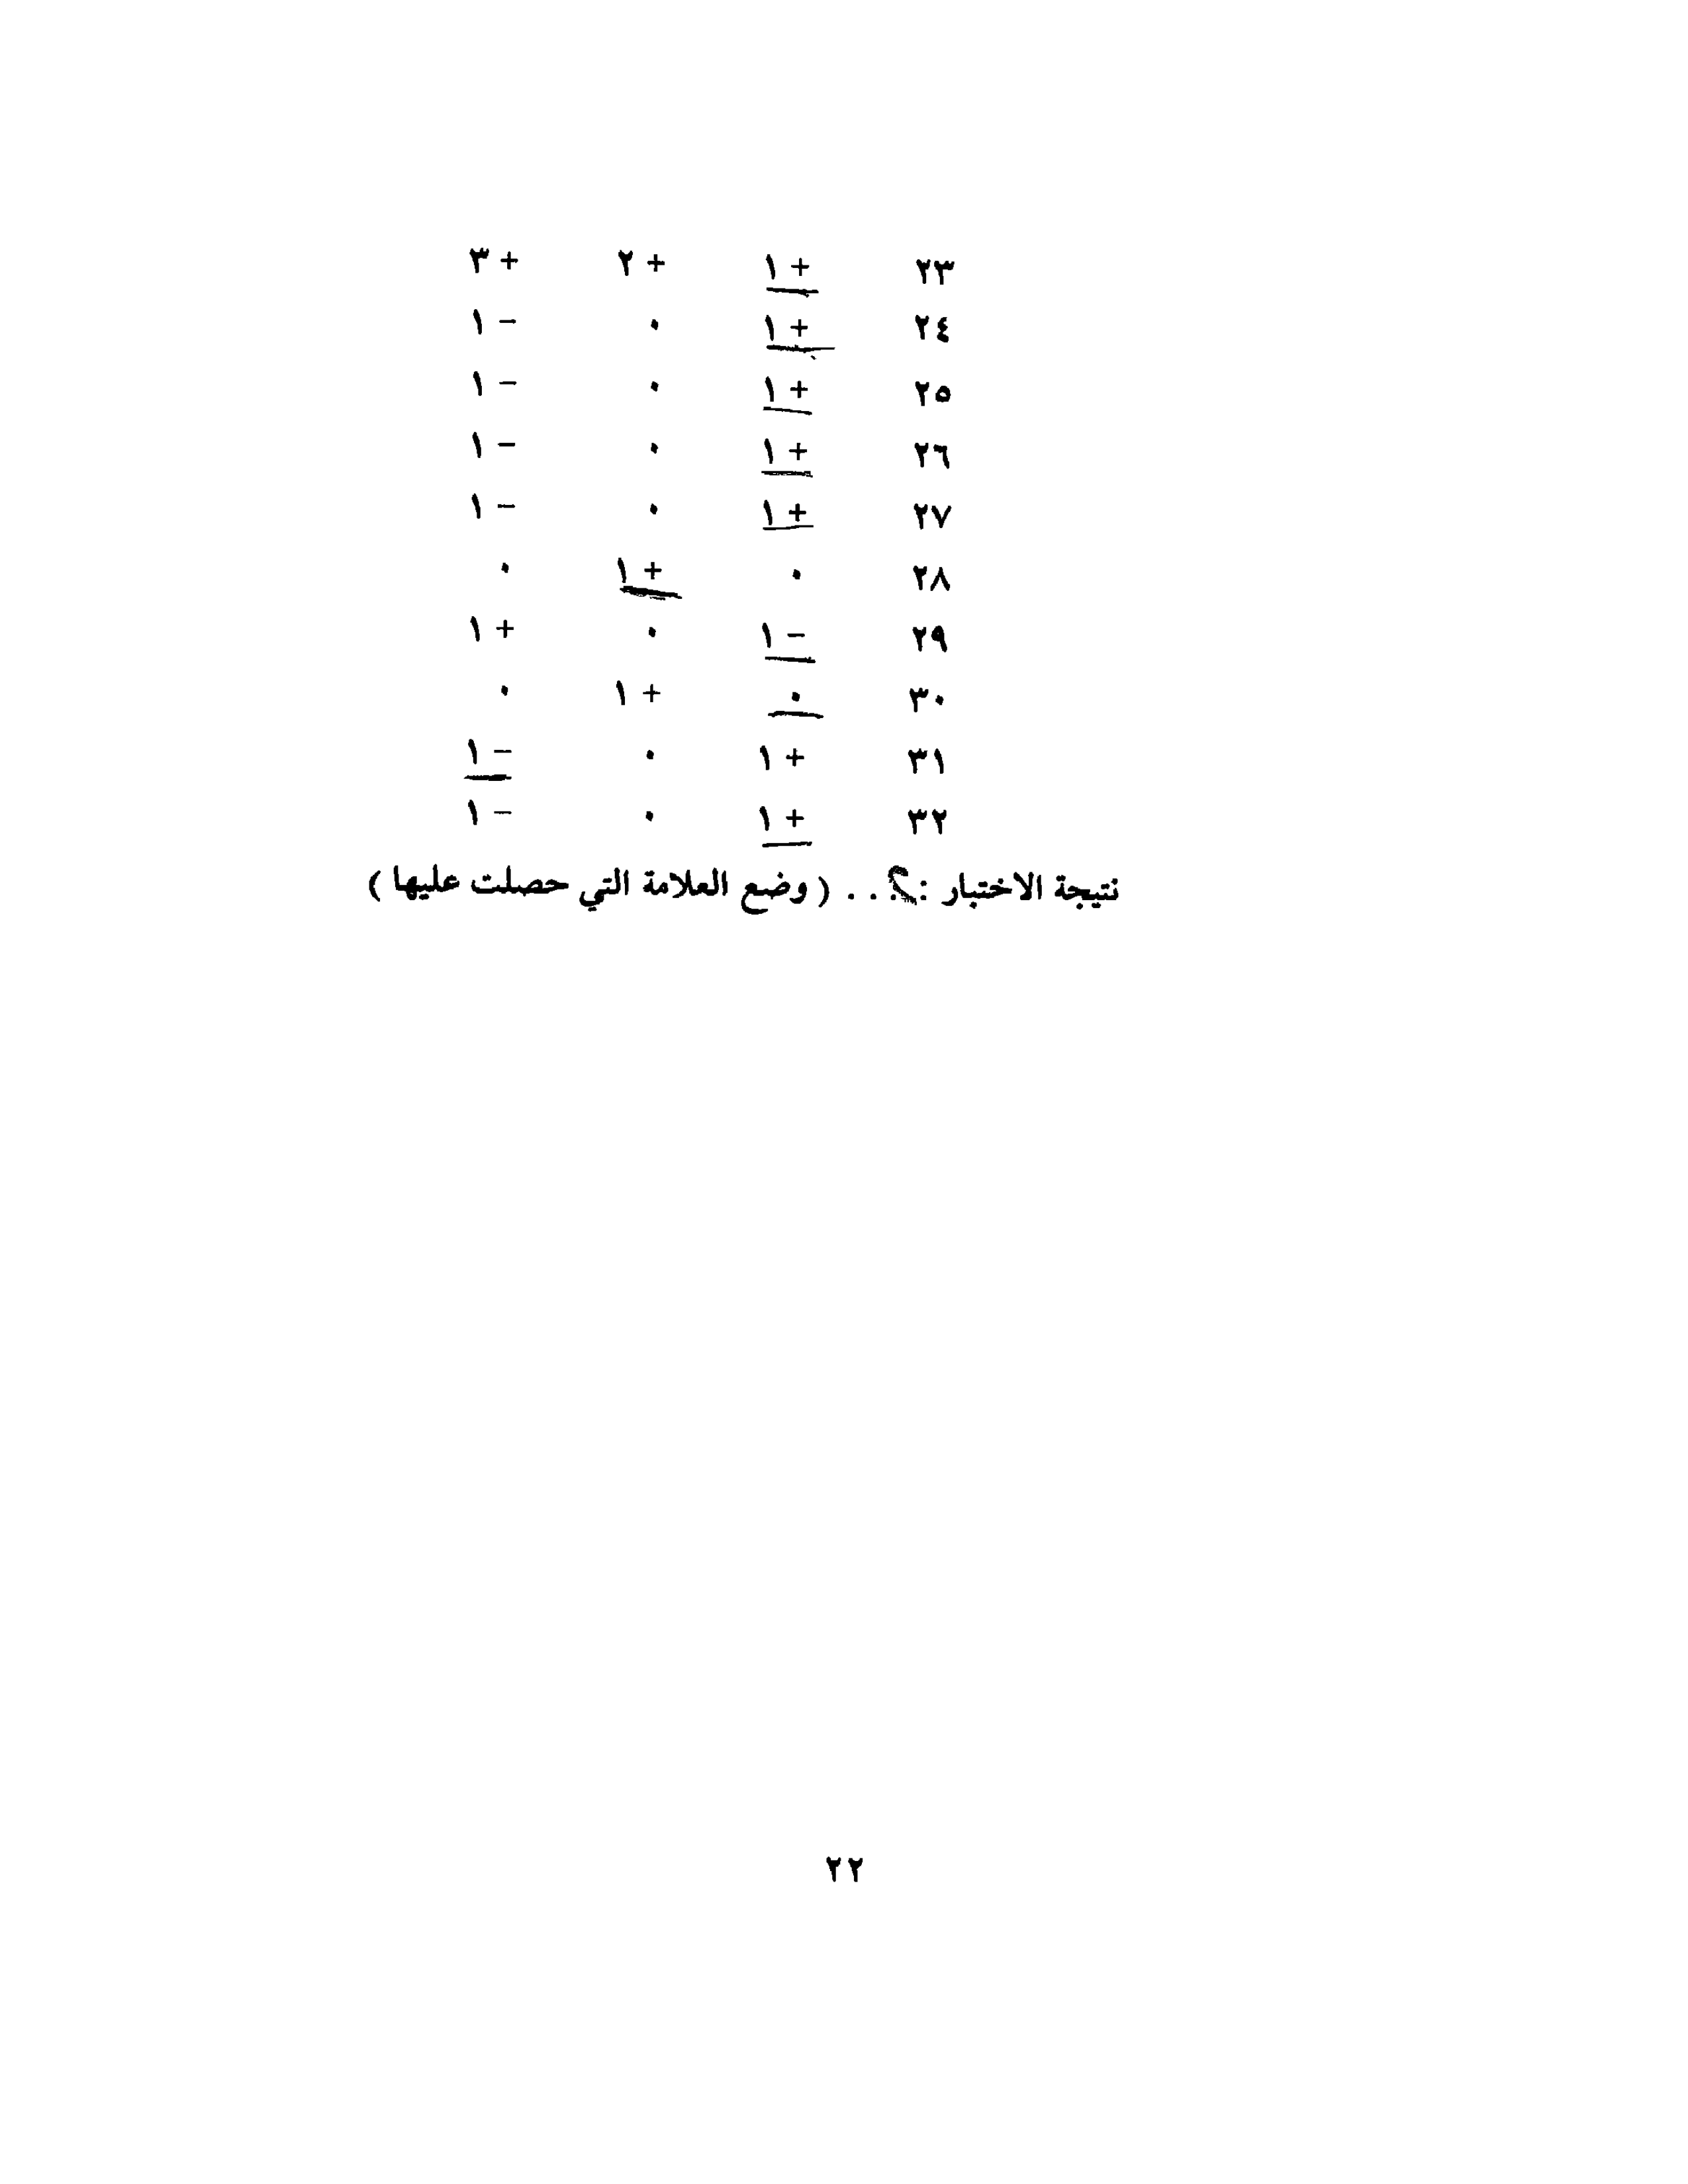 ٢٣ +١ +٢ +٣
٢٤ +١ ٠ -١
٢٥ +١ ٠ -١
٢٦ +١ ٠ -١
٢٧ +١ ٠ -١
٢٨ ٠ +١ ٠
٢٩ -١ ٠ +١
٣٠ ٠ +١ ٠
٣١ +١ ٠ -١
٣٢ +١ ٠ -١
نتيجة الاختبار :... ( وضع العلامة التي حصلت عليها )
٢٢